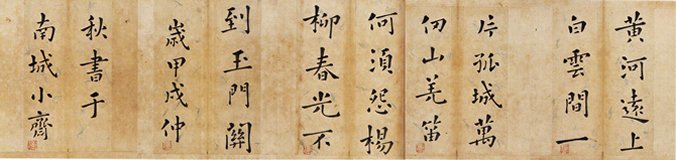 黃河遠上
白雲間一
片孤城萬
仞山羌笛
何須怨楊
柳春光不
到玉門關
歲甲戌仲
秋書于
南城小齋